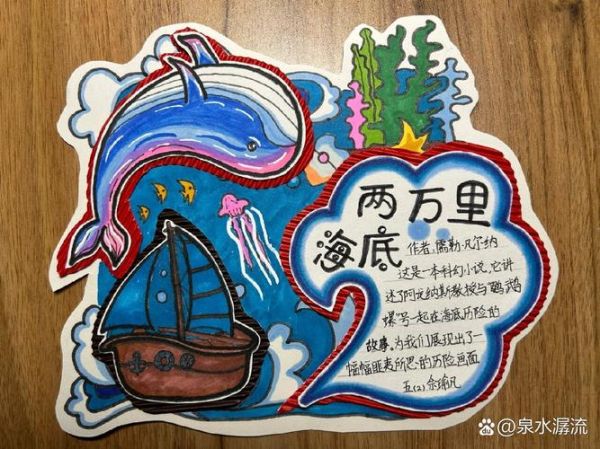 两万里
海底
作者,儒勒·凡尔纳
这是一本科幻小说,它讲
述了阿龙纳斯教授与鹦鹉
螺号一起在海底历险的
故事。为我们展现出了一
幅幅匪夷所思的历险画面
五(2) 余瑜凡
@泉水潺流